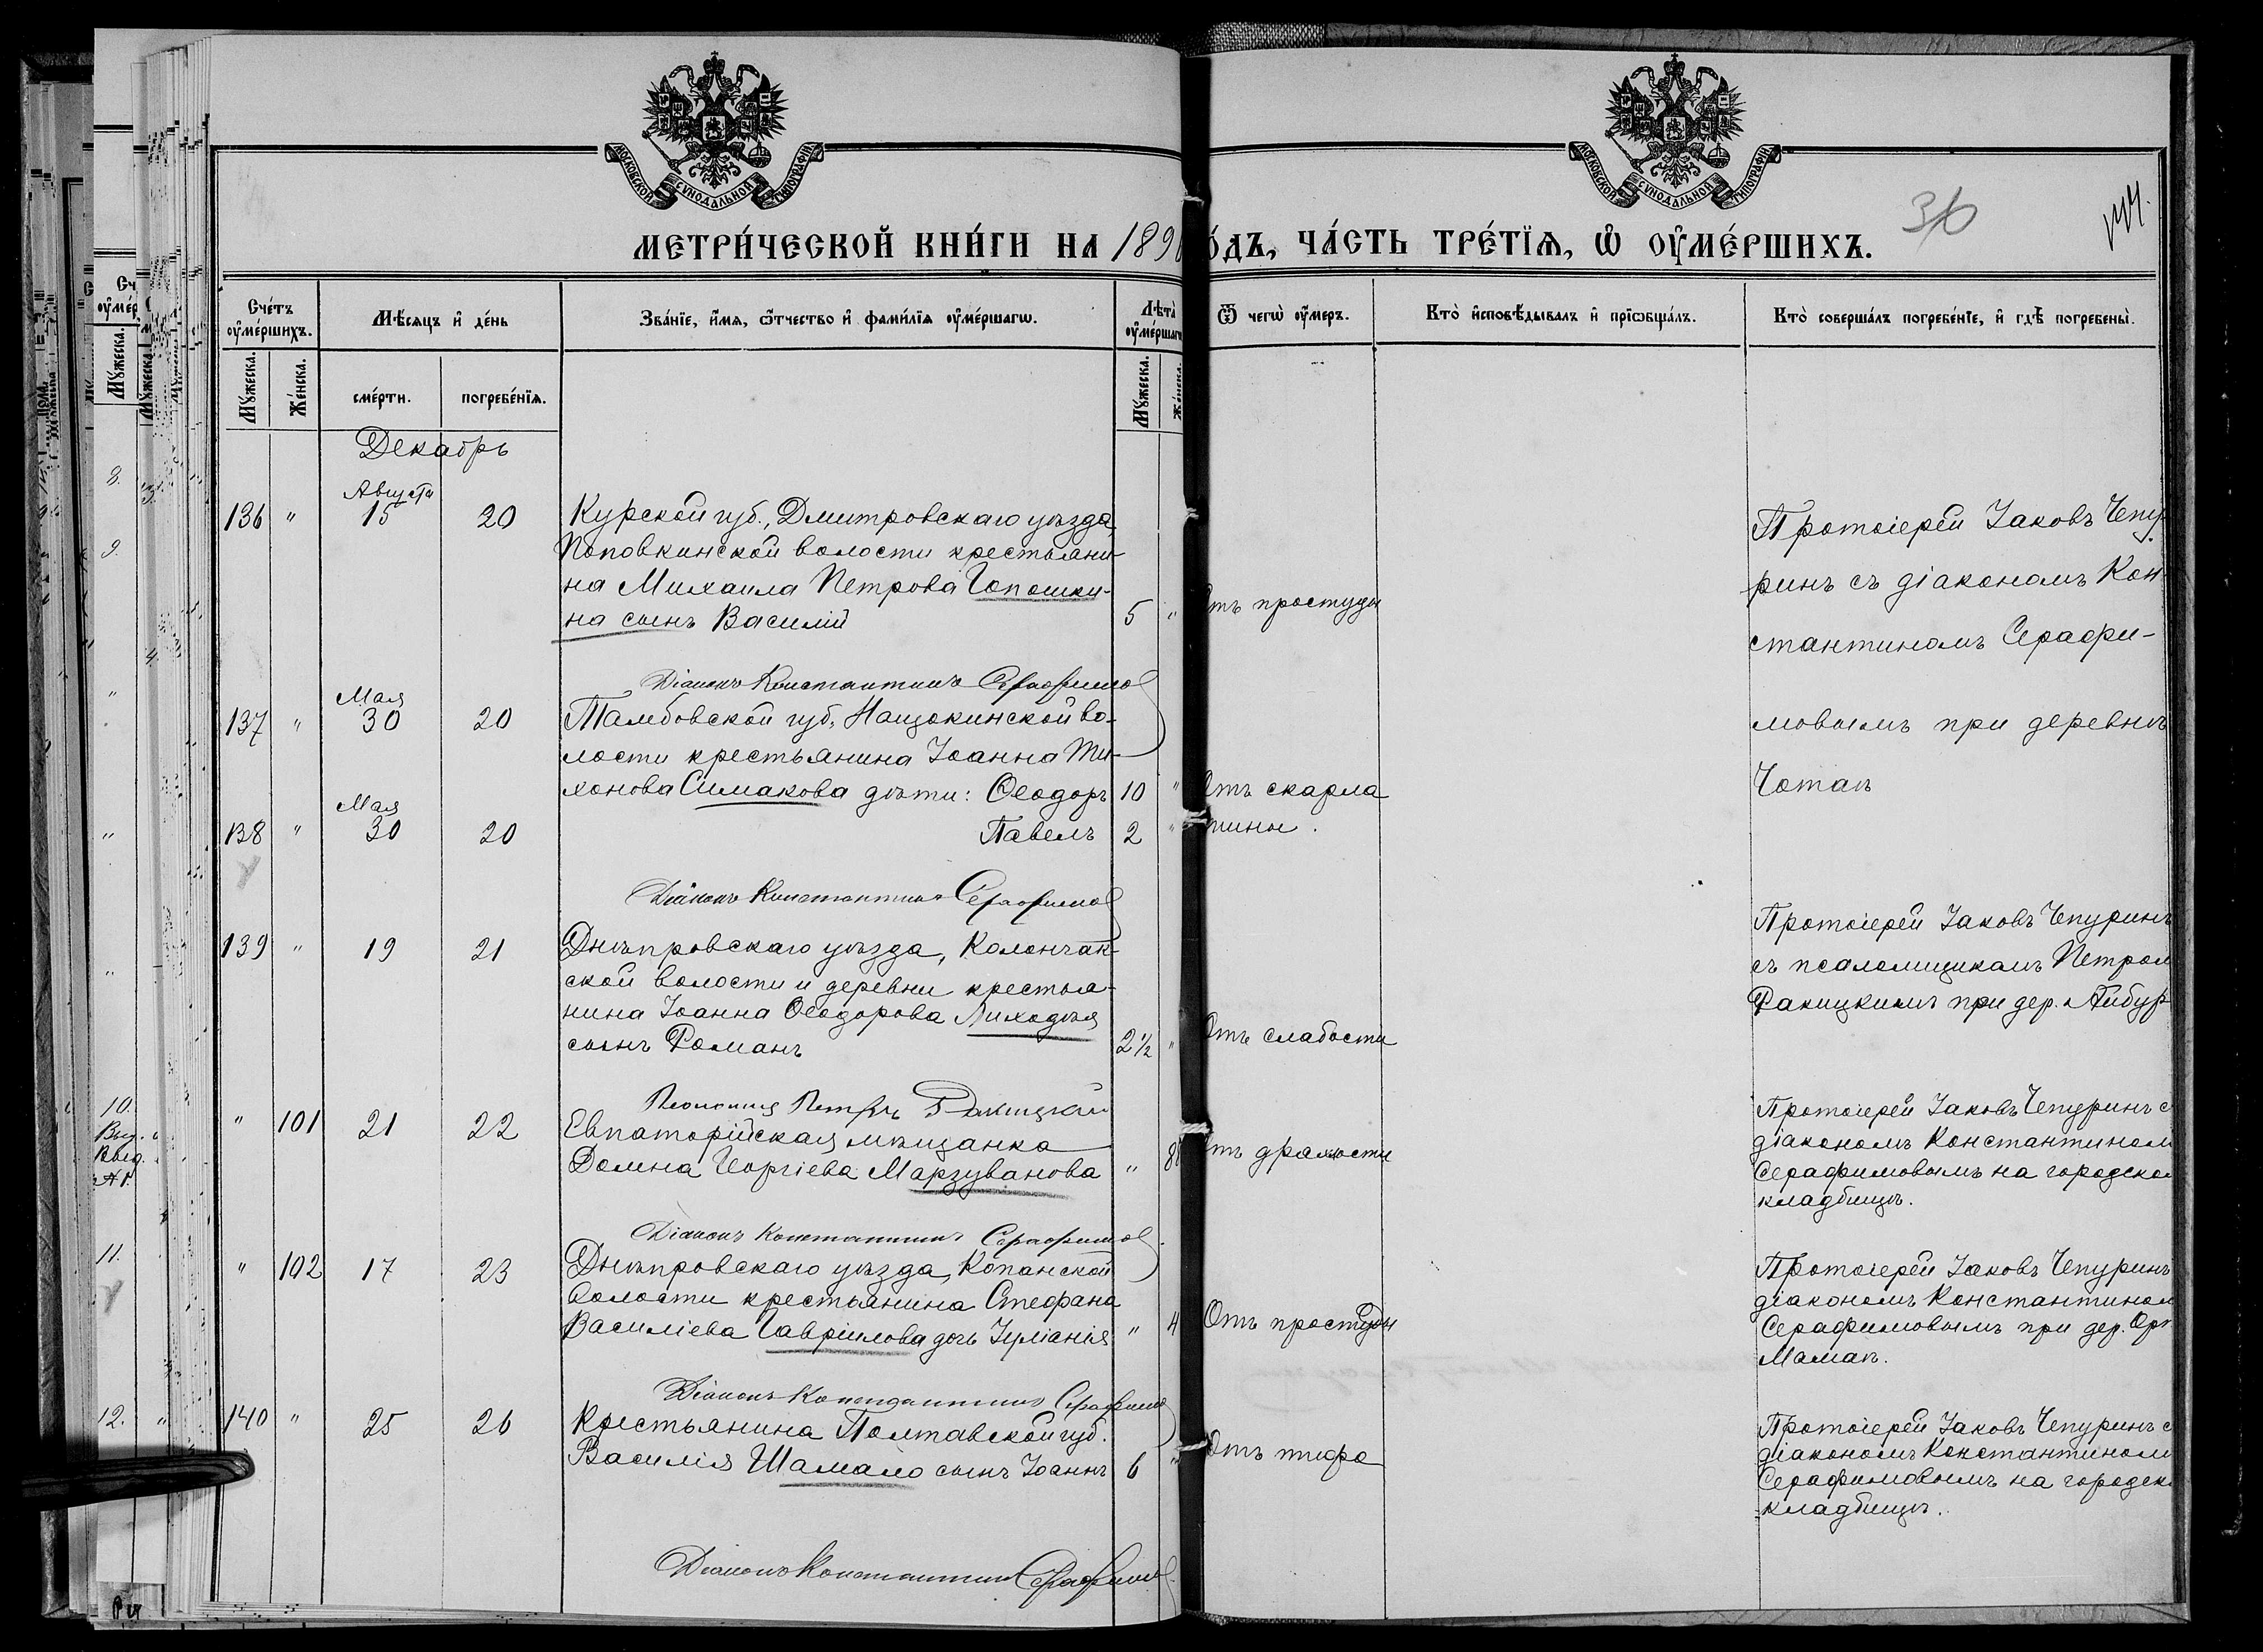 МОСКОВСКОЙ СѴНОДАЛЬНОЙ ТИПОГРАФІИ
МОСКОВСКОЙ СѴНОДАЛЬНОЙ ТИПОГРАФІИ
36
МЕТРИ́ЧЕСКОЙ КНИ́ГИ НА 189
О́ДЪ, ЧА́СТЬ ТРЕ́ТЇѦ, Ѡ҆ ОУ҆МЕ́РШИХЪ.
Сче́тъ оу҆ме́ршихъ.
Мѣ́сяцъ и҆ де́нь
Зва́нїе, и҆́мѧ, ѻ҆́тчество и҆ фами́лїѧ оу҆ме́ршагѡ.
Лѣ́та оу҆ме́ршагѡ
Ѿ чегѡ̀ оу҆́меръ.
Кто̀ и҆сповѣ́дывалъ и҆ прїѡбща́лъ.
Кто̀ соверша́лъ погребе́нїе, и҆ гдѣ̀ погребены̀.
Мꙋ́жеска.
Же́нска.
сме́рти.
погребе́нїѧ.
Мꙋ́жеска.
Декабрь
Августа
136 " 15 20 Курской губ., Дмитровскаго уѣзда,
Поповкинской волости крестьяни-
на Михаила Петрова Гопошки-
на сынъ Василій 5 " Отъ простуды
Протоіерей Іаковъ Чепу-
ринъ съ діакономъ Кон-
стантиномъ Серафи-
мовымъ при деревнѣ
Чотак
Діаконъ Константинъ Серафимов
Мая
137 " 30 20 Тамбовской губ., Нащокинской во-
лости крестьянина Іоанна Ти-
хонова Симакова дѣти: Ѳеодоръ 10 " Отъ скарла
Мая
138 " 30 20 Павелъ 2 " тины.
Діаконъ Константинъ Серафимов
139 " 19 21 Днѣпровскаго уѣзда, Колончак-
ской волости и деревни крестья-
нина Іоанна Ѳеодорова Лиходѣя
сынъ Романъ 2½ " Отъ слабости
Протоіерей Іаковъ Чепуринъ
съ псаломщикомъ Петром
Ракицкимъ при дер. Айбур
Псаломщ Петръ Ракицкій
" 101 21 22 Евпаторійская мѣщанка
Домна Георгіева Марзуванова " 8 отъ драхлости
Протоіерей Іаковъ Чепуринъ с
діакономъ Константином
Серафимовымъ на городском
кладбищѣ.
Діаконъ Константинъ Серафимов
" 102 17 23 Днѣпровскаго уѣзда, Копанской
волости крестьянина Стефана
Василіева Гавріилова дочь Іуліанія " 4 Отъ простуды
Протоіерей Іаковъ Чепуринъ
діакономъ Константином
Серафимовымъ при дер. Орт
Мамак.
Діаконъ Константинъ Серафимов
140 " 25 26 Крестьянина Полтавской губ.
Василія Шамало сынъ Іоаннъ 6 " Отъ тифа
Протоіерей Іаковъ Чепуринъ с
діакономъ Константином
Серафимовымъ на городск
кладбищѣ.
Діаконъ Константинъ Серафимов